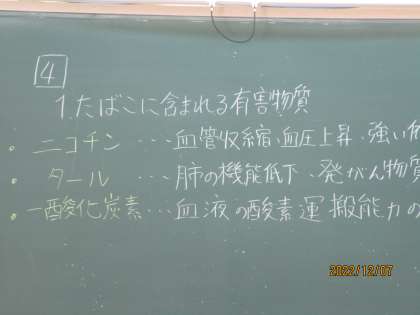 4
1.たばこに含まれる有害物質
・ニコチン …血管収縮、血圧上昇、強い
・タール …肺の機能低下、発がん物質
・一酸化炭素…血液の酸素運搬能力の
2022/12/07